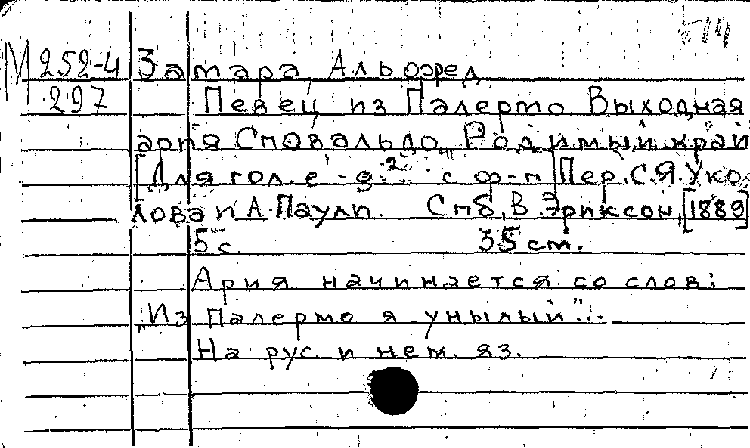 М 252-4 Замара, Альфред
297 Певец из Палермо Выходная
ария Спо­вальдо „Родимый край"
[Для гол. e¹-g² с ф-п] Пер. С.Я. Уко-
лова и А. Паули. Спб, В. Эриксон, [1889]
5 с. 35 cm.
Ария начинается со слов:
„Из Палермо я унылый"...
На рус. и нем. яз.